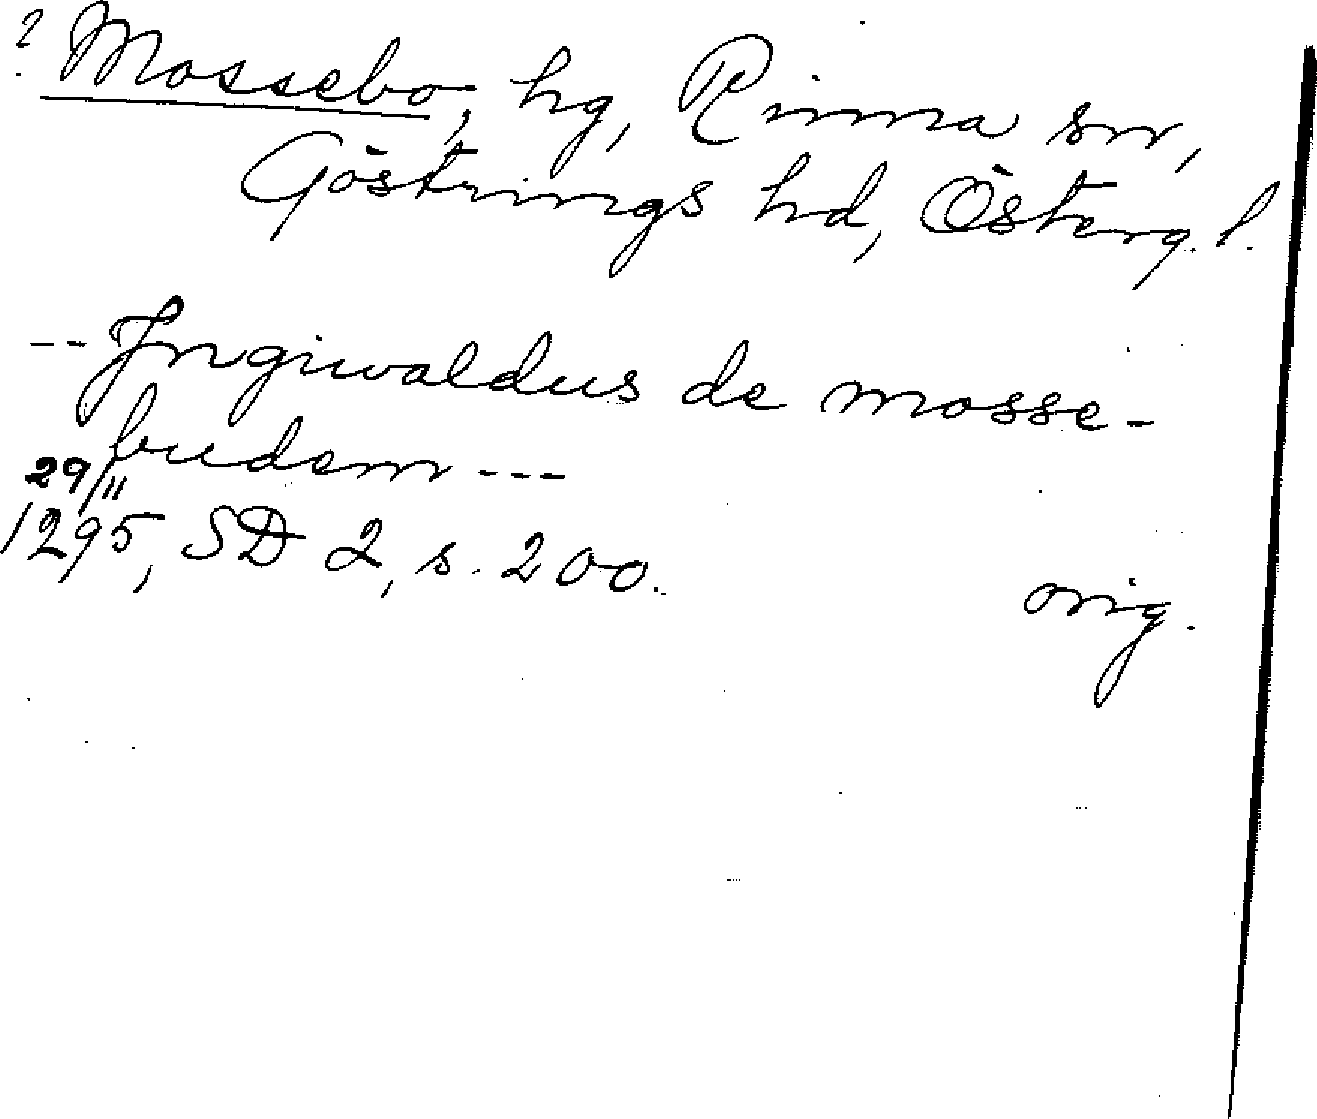 ? Mossebo, hg, Rinna sn,
Göstrings hd, Österg. l.
-- Jngiwaldus de mosse-
budem ---
29/11
1295, SD 2, s. 200.
orig.